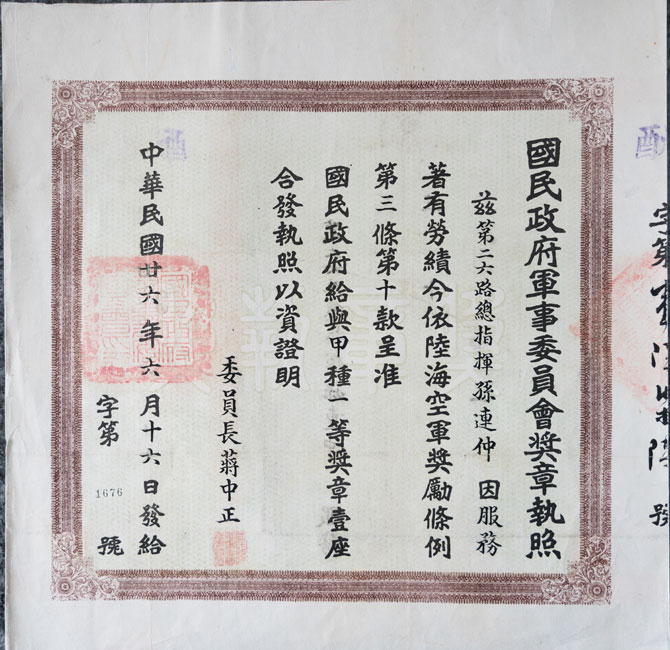 國民政府軍事委員會獎章執照
茲第二六路總指揮孫連仲因服務
著有勞績今依陸海空軍獎勵條例
第三條第十款呈准
國民政府給與甲種一等獎章壹座
合發執照以資證明
委員長蔣中正
中華民國廿六年六月十六日發給
字第1676號